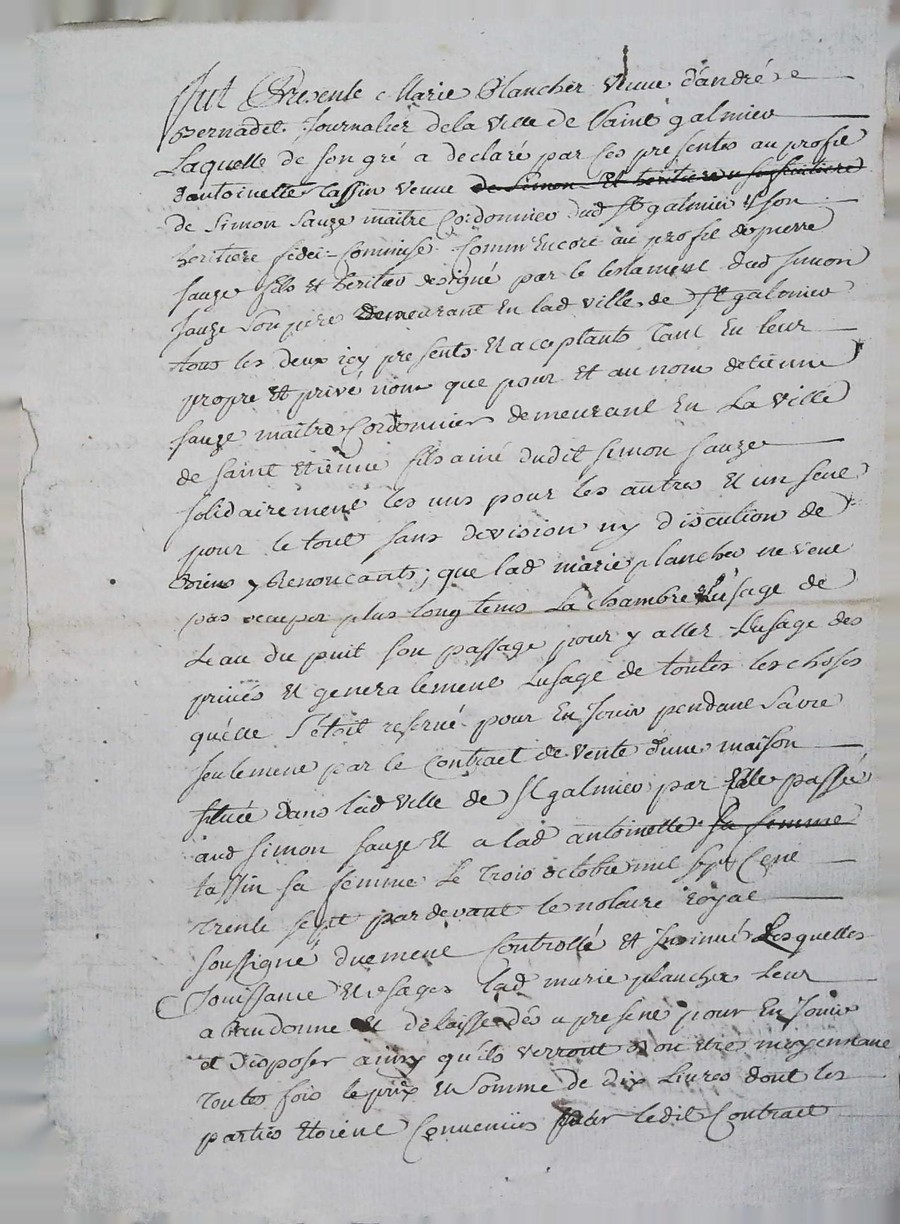 fut Presente Marie Plancher veuve d'andré
Bernadet Journalier dela ville de Saint galmier
Laquelle de son gré a declaré par ses presentes au profit
d'antoinette tassin veuve de Simon Et heritiere
de Simon Sauze maitre Cordonnier dud St galmier & son
heritiere fidei-commise Comm'Encore au profit de pierre
sauze fils Et heritier designé par le testament dud simon
sauze son pere demeurant En lad ville de St galmier
tous les deux icy presents Et aceptants tant En leur
propre Et privé nom que pour Et au nom detienne
sauze maitre Cordonnier demeurant En La Ville
de saint Etienne fils ainé dudit simon sauze
solidairement les uns pour les autres Et un seul
pour le tout sans devision ny discution de
biens y Renonçants; que lad marie plancher ne veut
pas ocuper plus long tems La chambre L'usage de
Leau du puit son passage pour y aller L'usage des
privés Et generalement Lusage de toutes les choses
qu'elle s'étoit reservé pour En Jouir pendant sa vie
seulement par le Contract de vente d'une maison
située dans lad ville de St galmier par Elle passée
aud simon sauze Et a lad antoinette sa femme
tassin sa femme Le trois octobre mil sept Cent
trente sept pardevant le notaire royal
soussigné duement Controllé Et insinué Lesquelles
Jouissance Et usages lad marie plancher Leur
abandonne Et délaisse dés a present pour En Jouir
et disposer ainsy qu'ils verront bon être moyennant
toutes fois le prix En somme de dix Livres dont les
parties étoient Convenües par ledit Contract